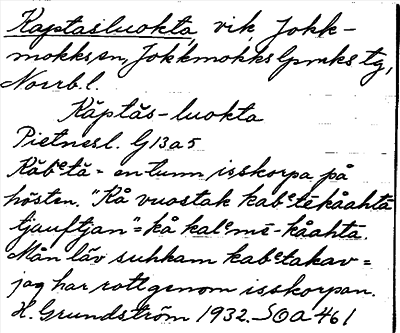 Kaptasluokta, vik, Jokk-
mokks sn, Jokkmokks lpmks tg,
Norrb. l.
Kåptås-luokta
Pietnesl. G13a5
Kåbᵉtå - en tunn isskorpa på
hösten. "Kå vuostak kabᵉtēkåahtā
tjauftjan" = kå kalᵉmē-kåahtā.
Mån låv suhkam kabᵉtakav =
jag har rott genom isskorpan.
H. Grundström 1932. SOA 461